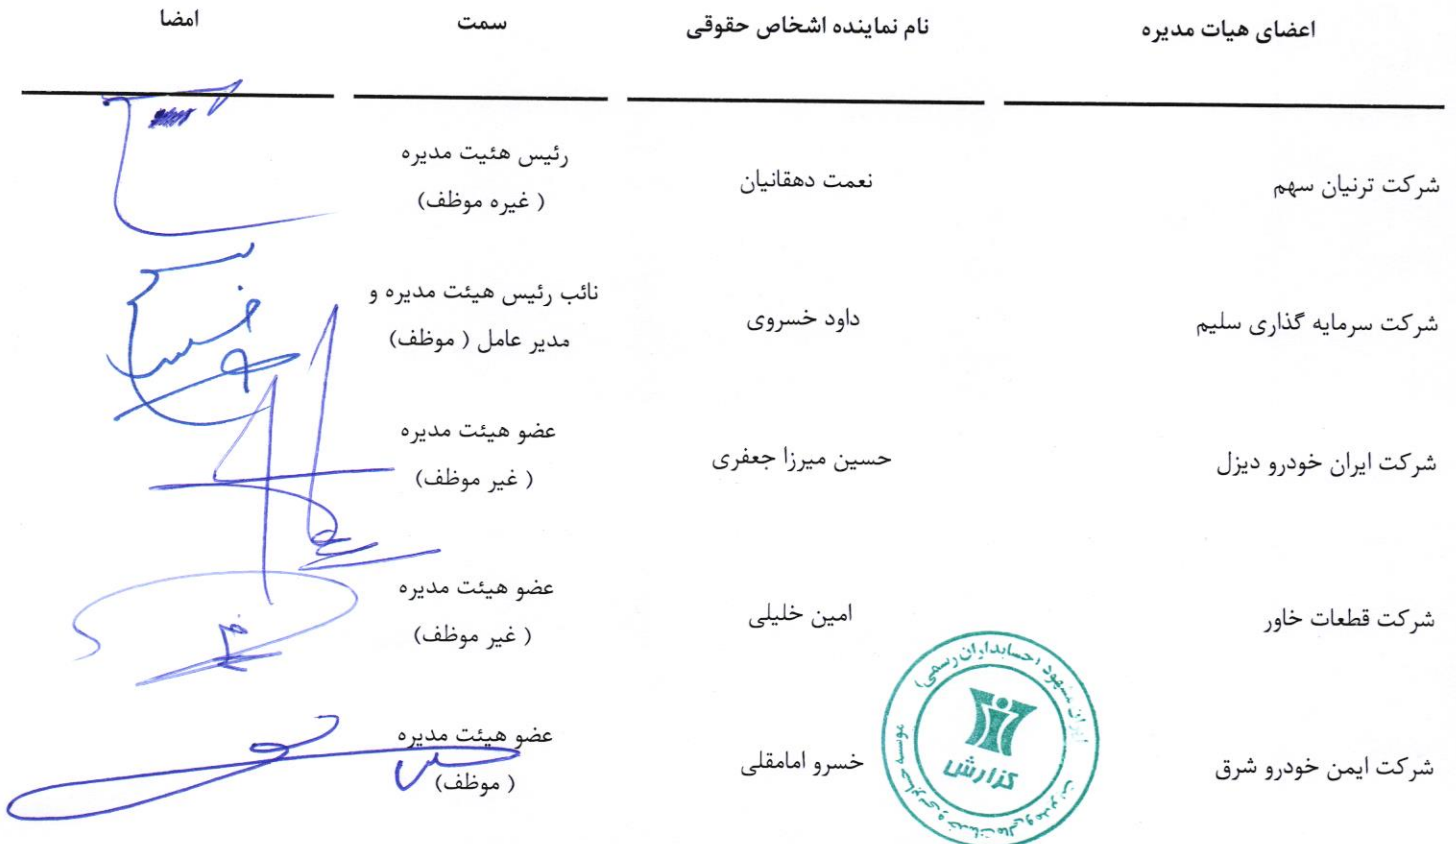 اعضای هیات مدیره
نام نماینده اشخاص حقوقی
سمت
امضا
شرکت ترنیان سهم
نعمت دهقانیان
رئیس هئیت مدیره
( غیره موظف)
شرکت سرمایه گذاری سلیم
داود خسروی
نائب رئیس هیئت مدیره و
مدیر عامل ( موظف)
شرکت ایران خودرو دیزل
حسین میرزا جعفری
عضو هیئت مدیره
( غیر موظف)
شرکت قطعات خاور
امین خلیلی
عضو هیئت مدیره
( غیر موظف)
شرکت ایمن خودرو شرق
خسرو امامقلی
عضو هیئت مدیره
( موظف)
(حسابداران رسمی)
گزارش